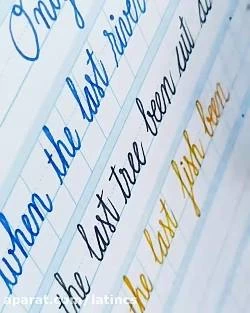 Only
when the last river
the last tree been cut
the last fish been
aparat.com/latincs